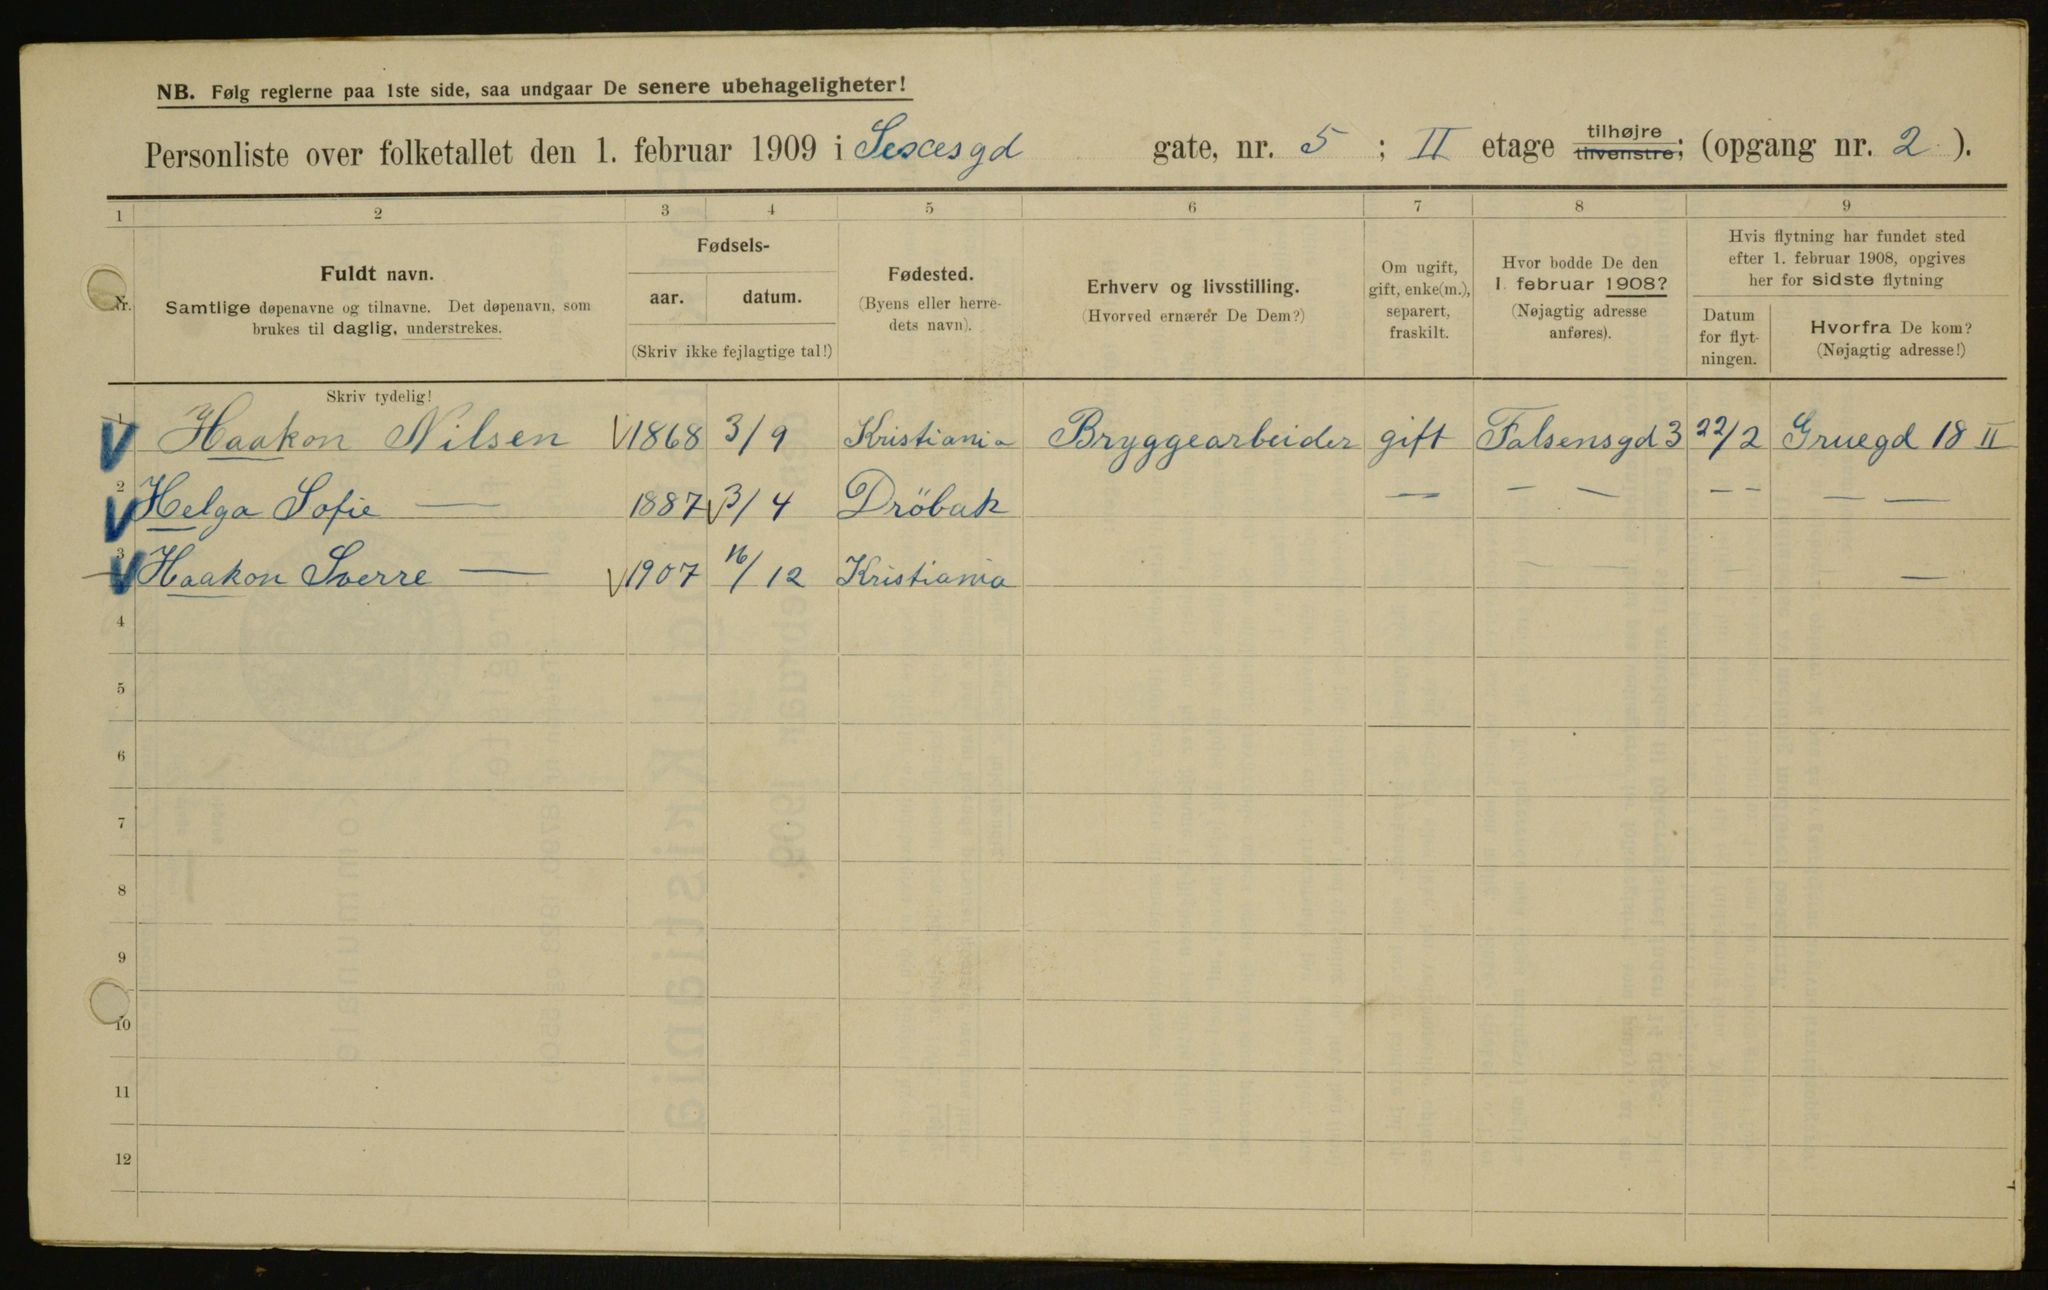 NB. Følg reglerne paa 1ste side, saa undgaar De senere ubehageligheter!
Personliste over folketallet den 1. februar 1909 i Sexesgd gate, nr. 5 ; II etage tilhøjre tilvenstre; (opgang nr. 2 ).
1 2 3 4 5 6 7 8 9
Nr.
Fuldt navn.
Samtlige døpenavne og tilnavne. Det døpenavn, som
brukes til daglig, understrekes.
Fødsels-
aar. datum.
(Skriv ikke fejlagtige tal!)
Fødested.
(Byens eller herre-
dets navn).
Erhverv og livsstilling.
(Hvorved ernærer De Dem?)
Om ugift,
gift, enke(m.),
separert,
fraskilt.
Hvor bodde De den
1. februar 1908?
(Nøjagtig adresse
anføres).
Hvis flytning har fundet sted
efter 1. februar 1908, opgives
her for sidste flytning
Datum
for flyt-
ningen.
Hvorfra De kom?
(Nøjagtig adresse!)
Skriv tydelig!
1 Haakon Nilsen 1868 3/9 Kristiania Bryggearbeider gift Falsensgd 3 22/2 Gruegd 18 II
2 Helga Sofie — 1887 3/4 Dröbak — — — — — — —
3 Haakon Sverre — 1907 16/12 Kristiania — — — —
4
5
6
7
8
9
10
11
12